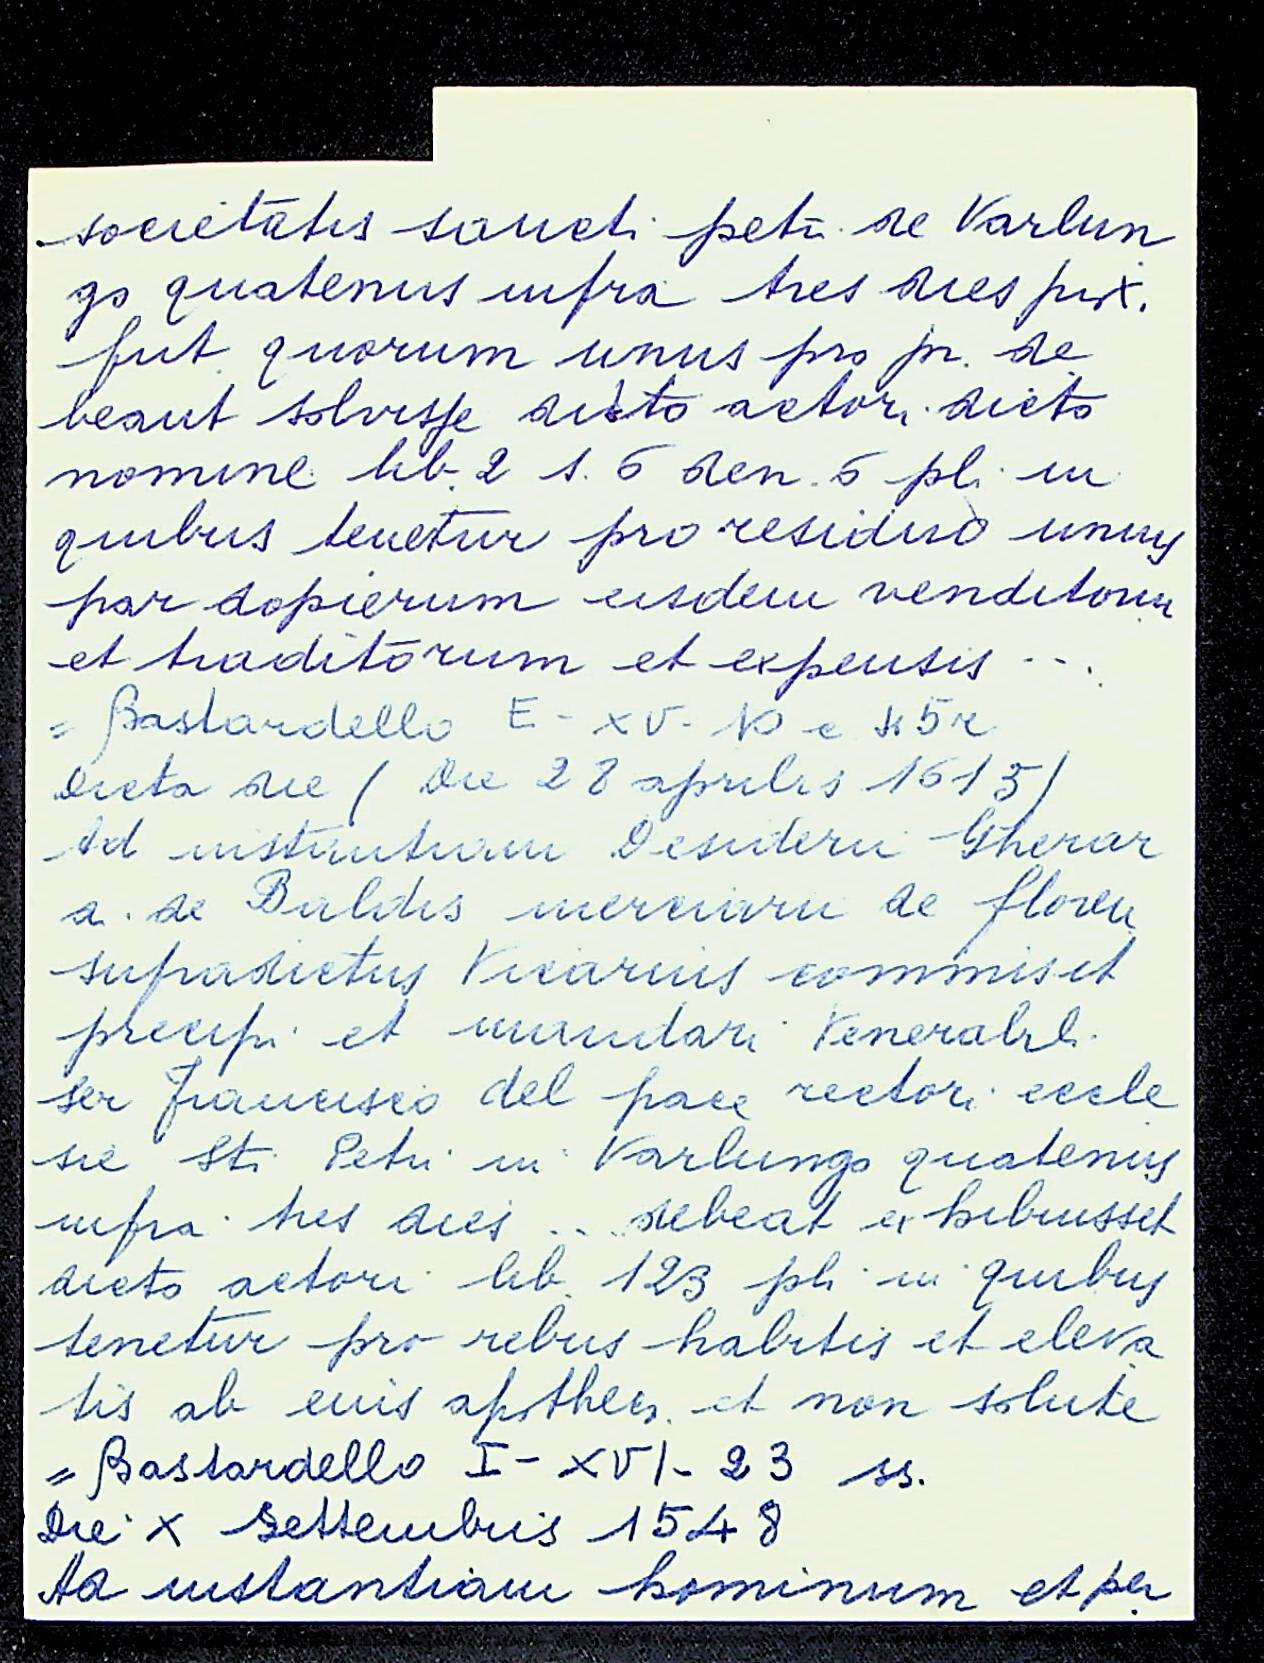 societatis sancti petri de Varlun
go quatenus infra tres dies prox.
fut. quorum unus pro pr. de
beant solvisse dicto actori dicto
nomine lib. 2 s. 6 den. 6 pli. in
quibus tenetur pro residuo unus
par dopierum eisdem venditorum
et traditorum et expensis ...
= Bastardello E - XV - 10 c 5r
Dicta die ( Die 28 aprilis 1615)
Ad instantiam Desiderii Gherar
d. de Baldis merciarii de floren
supradictus Vicarius commisit
precipi et mandari Venerabili
ser Francisco del pace rectori eccle
sie Sti Petri in Varlungo quatenus
infra tres dies ... debeat exhibuisset
dicto actori lib. 123 pli in quibus
tenetur pro rebus habitis et eleva
tis ab euis apothec. et non solute
= Bastardello I - XVI - 23 ss.
Die X Settembris 1548
Ad instantiam hominum et per